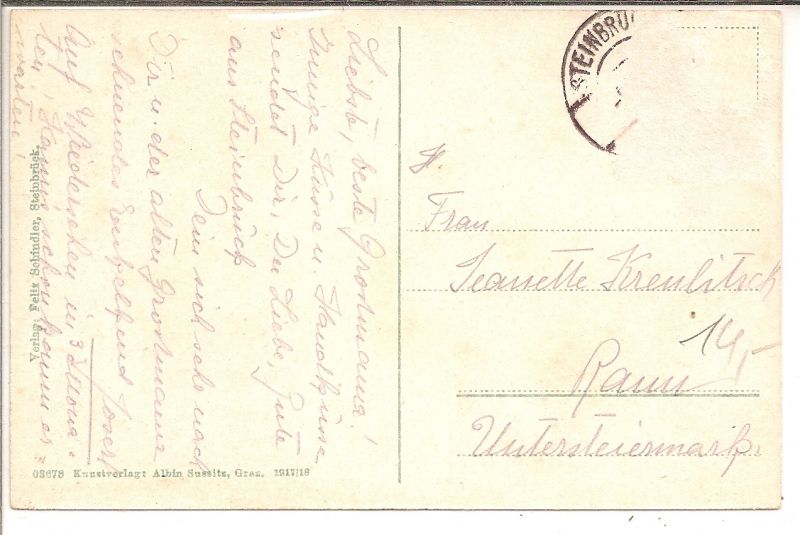 Liebste, beste Grosmama!
Innige Küsse u. Handküsse
sendet Dir, Du Liebe, Gute
aus Steinbrück
Dein sich sehr nach
Dir u. der alten Grosmama
sehnendes Enkelkind Josef
Auf Wiedersehen in 3
kann es
warten!
Verlag Felix Schindler, Steinbrück.
03678 Kunstverlag: Albin Sussitz, Graz. 1917/18
STEINBRÜ
Frau
Jeanette Kreulitsch
14,-
Rann
Untersteiermark.